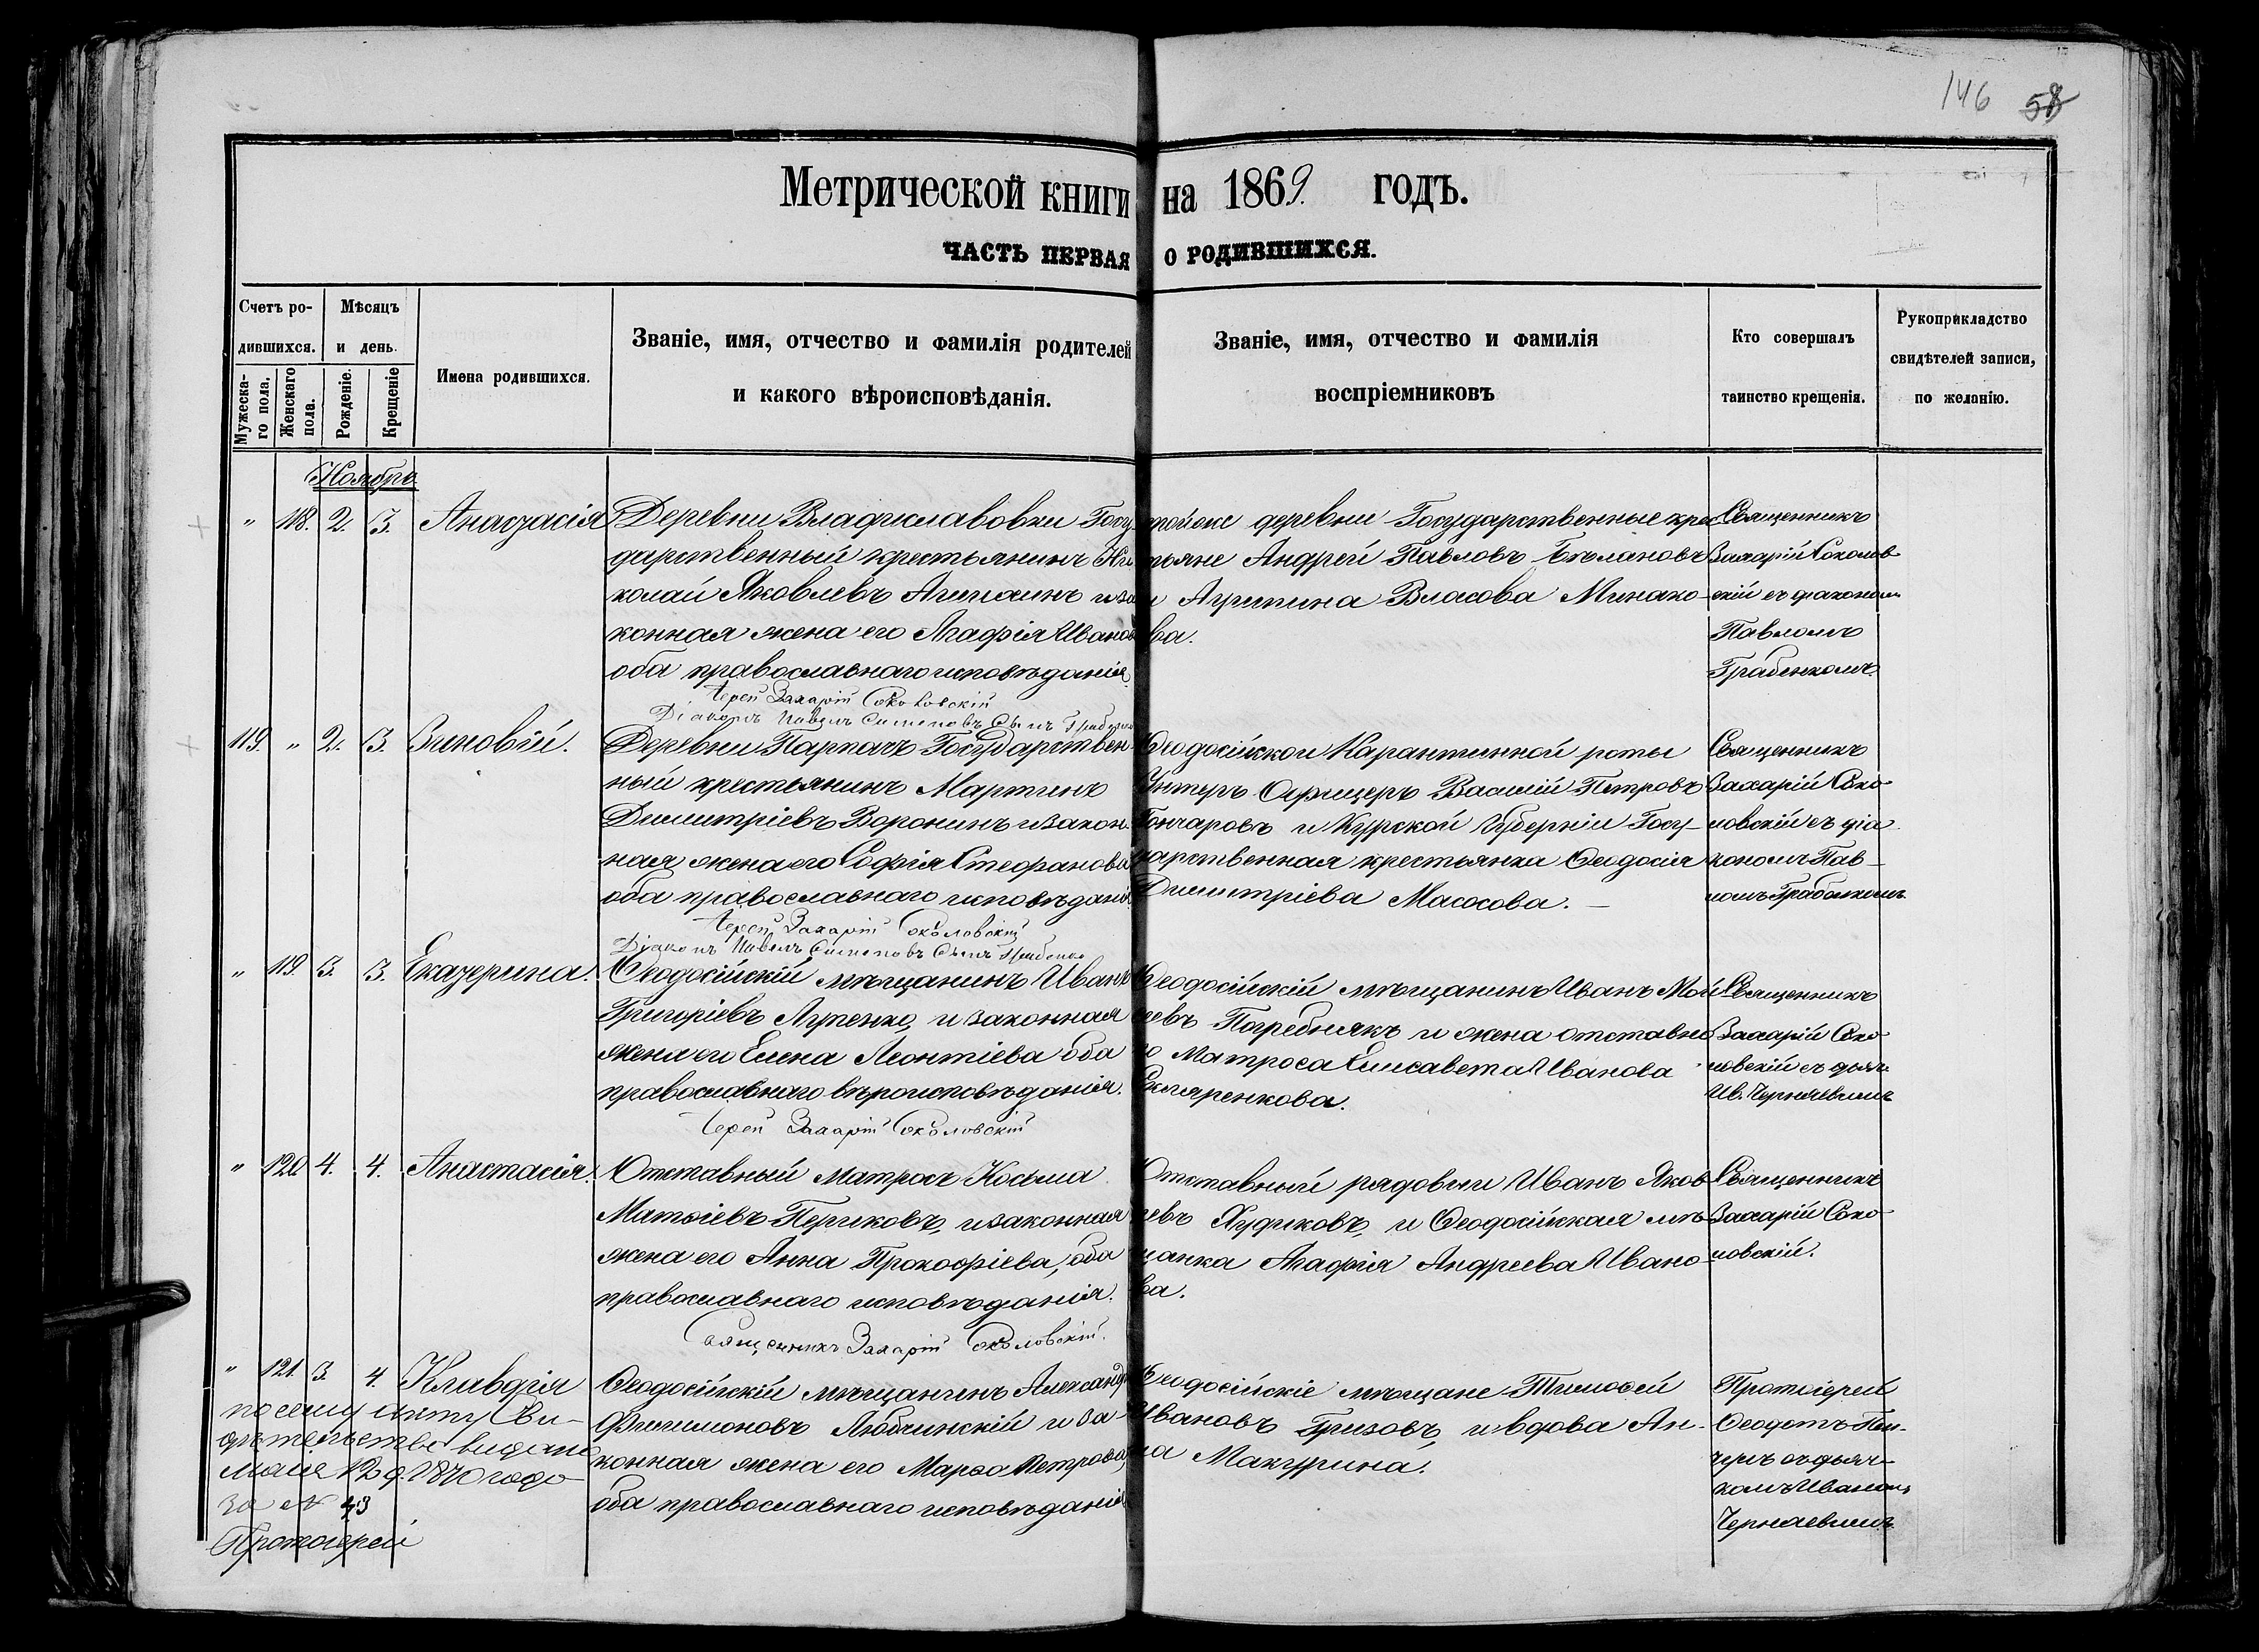 146 58
Метрической книги на 1869. годъ.
ЧАСТЬ ПЕРВАЯ О РОДИВШИХСЯ.
Счетъ ро-
дившихся.
Мужеска-
го пола.
Женскаго
пола.
Мѣсяцъ
и день.
Рожденіе.
Крещеніе
Имена родившихся.
Званіе, имя, отчество и фамилія родителей
и какого вѣроисповѣданія.
Званіе, имя, отчество и фамилія
воспріемниковъ
Кто совершалъ
таинство крещенія.
Рукоприкладство
свидѣтелей записи,
по желанію.
Ноябрь
" 118. 2. 3. Анастасія
Деревни Владиславовки Госу
дарственный крестьянинъ Ни
колай Яковлевъ и за
конная жена его Агафія Иванов
оба православнаго исповѣданія.
Іерей Захарій Соколовскій
Діаконъ Павелъ Симеоновъ Сынъ
тойже деревни Государственные крес
тьяне Андрей Павловъ Бѣлановъ
и Агрипина Власова Минако-
ва.
Священникъ
Захарій Соколов
скій съ діакономъ
Павломъ
Грабенкомъ.
119. " 2. 3. Зиновій.
Деревни Парпачъ Государствен-
ный крестьянинъ Мартинъ
Димитріевъ Воронинъ и закон-
ная жена его Софія Стефанова
оба православнаго исповѣданія.
Іерей Захарій Соколовскій
Діаконъ Павелъ Симеоновъ Сынъ
Ѳеодосійской Карантинной роты
Унтеръ Офицеръ Василій Петровъ
Гончаровъ и Курской Губерніи Госу-
дарственная крестьянка Ѳеодосія
Димитріева Масосова. —
Священникъ
Захарій Соко-
ловскій съ діа
кономъ Пав-
ломъ Грабенкомъ.
" 119. 3. 3. Екатерина.
Ѳеодосійскій мѣщанинъ Иванъ
Григоріевъ и законная
жена его Елена Леонтіева оба
православнаго вѣроисповѣданія.
Іерей Захарій Соколовскій
Ѳеодосійскій мѣщанинъ Иванъ Мои
сеевъ Погребнякъ и жена отставно
го Матроса Елисавета Иванова
Скляренкова.
Священникъ
Захарій Соко-
ловскій съ дьяч.
Ив. Чернявимъ
" 120. 4. 4. Анастасія.
Отставный Матросъ Косьма
Матѳіевъ Периковъ, и законная
жена его Анна Прокофіева, оба
православнаго исповѣданія.
Священникъ Захарій Соколовскій.
Отставный рядовый Иванъ Яков
левъ Худиковъ, и Ѳеодосійская мѣ-
щанка Агафія Андреева Ивано-
ва.
Священникъ
Захарій Соко-
ловскій.
" 121. 3. 4. Клавдія
по сему акту Сви-
дѣтельство видано
маія 12 д. 1870 года
за № 43
Протоіерей
Ѳеодосійскій мѣщанинъ Александръ
Филимоновъ Люблинскій и за-
конная жена его Марѳа Петрова,
оба православнаго исповѣданія
Ѳеодосійскіе мѣщане Тимоѳей
Ивановъ Гризовъ, и вдова Ан-
на Макурина.
Протоіерей
Ѳеодотъ
съ дьяч-
комъ Иваномъ
Чернаевымъ